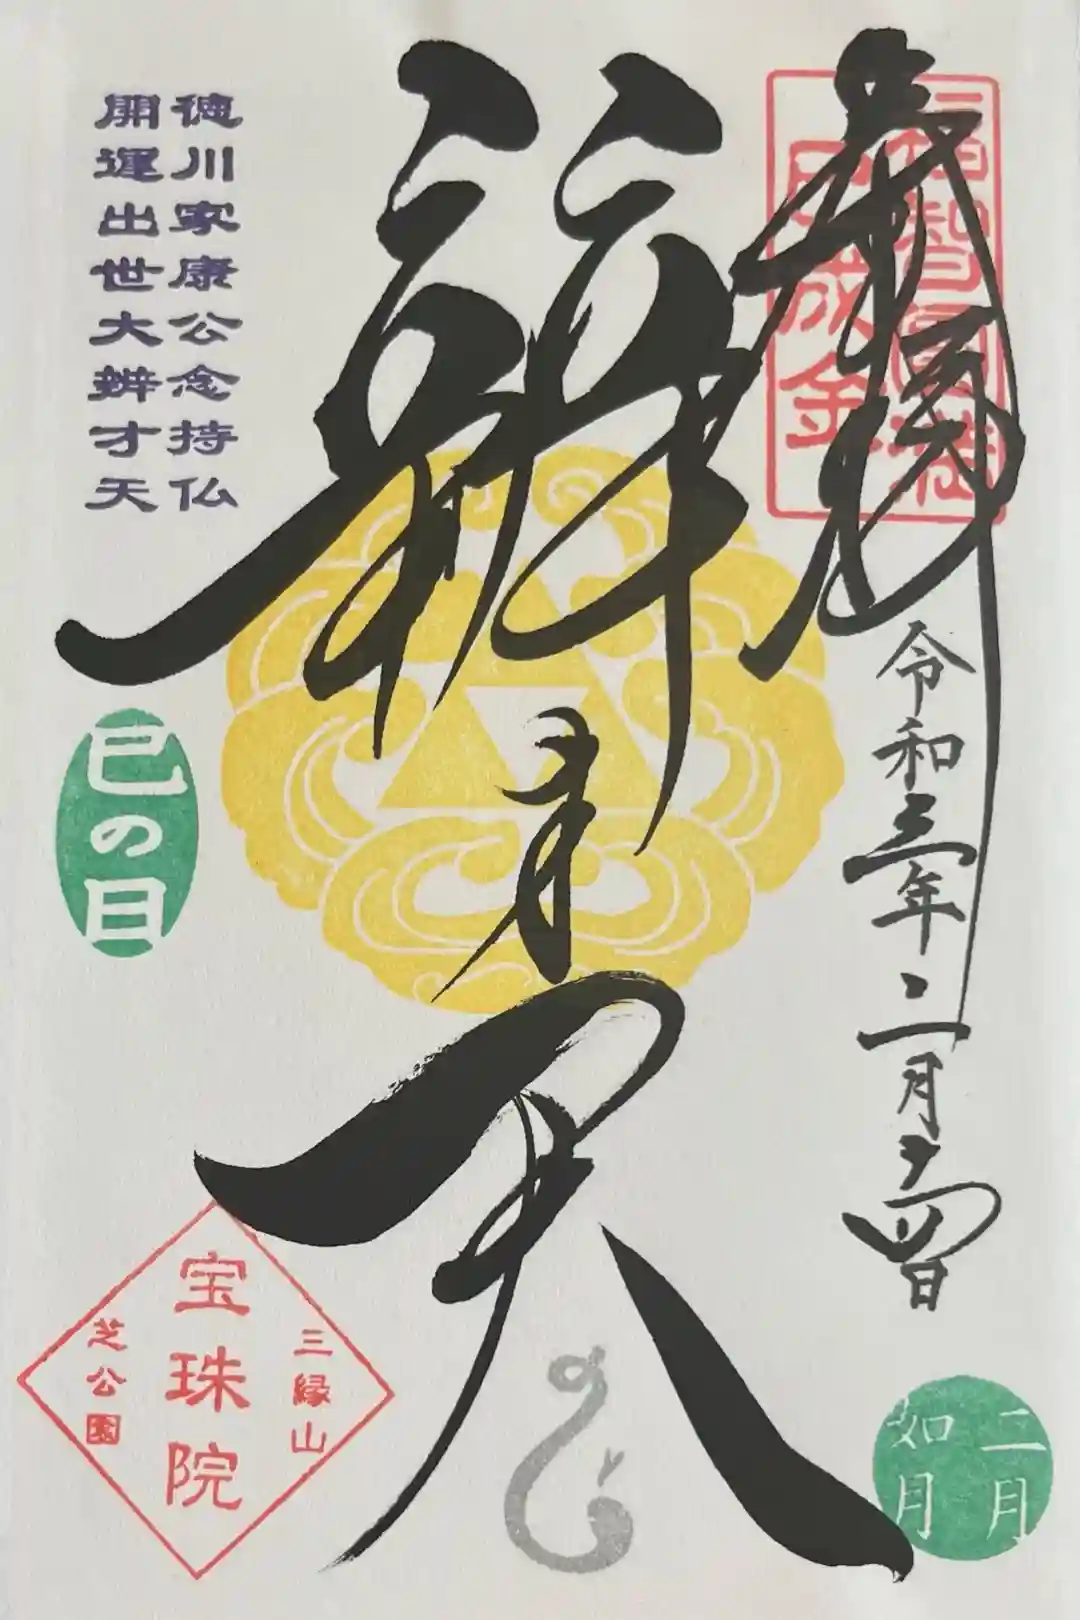 奉拝
福智円満
巳成金
令和三年二月十四日
辨才天
徳川家康公念持仏
開運出世大辨才天
巳の日
三縁山
宝珠院
芝公園
二月
如月